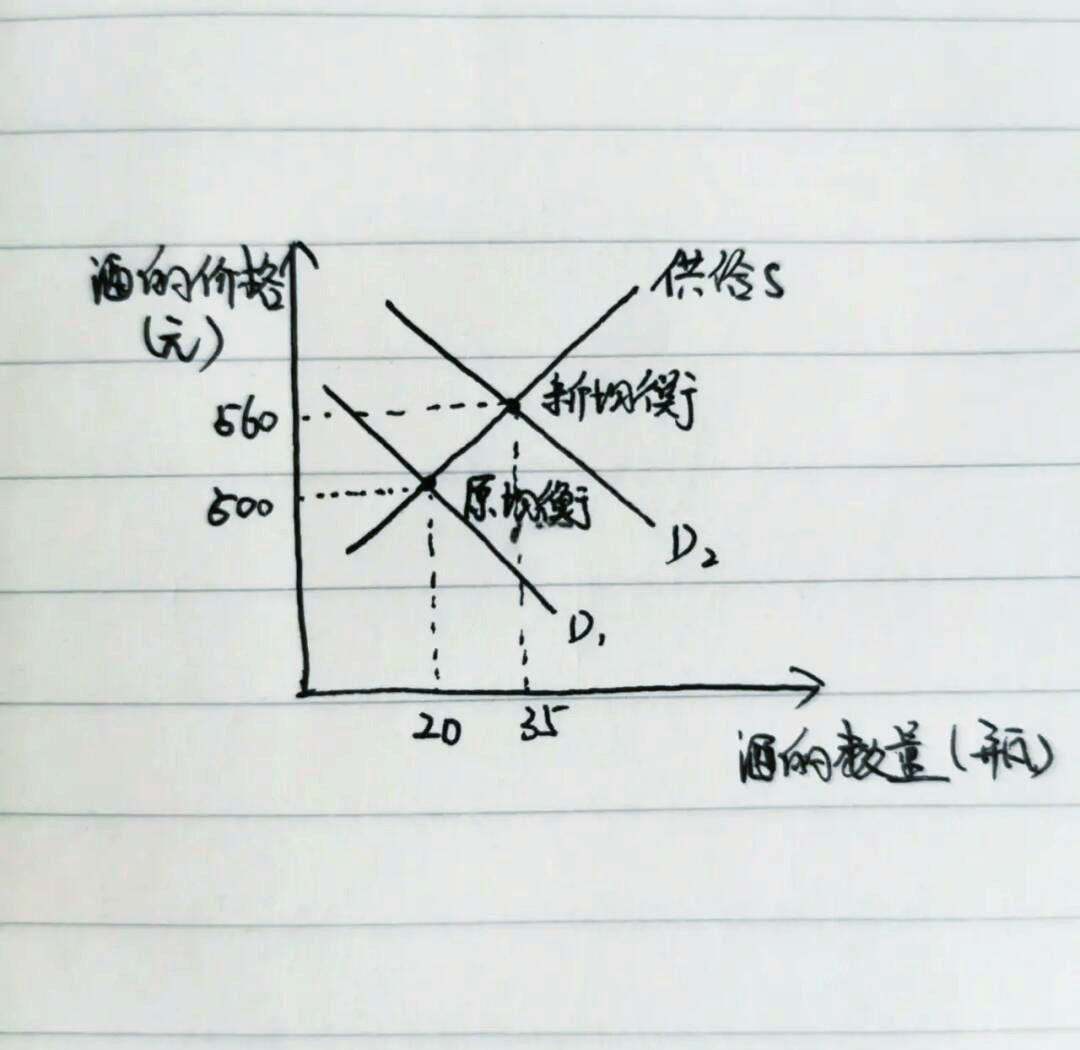 酒的价格
(元)
供给S
560
新均衡
500
原均衡
D₂
D₁
20
35
酒的数量(瓶)